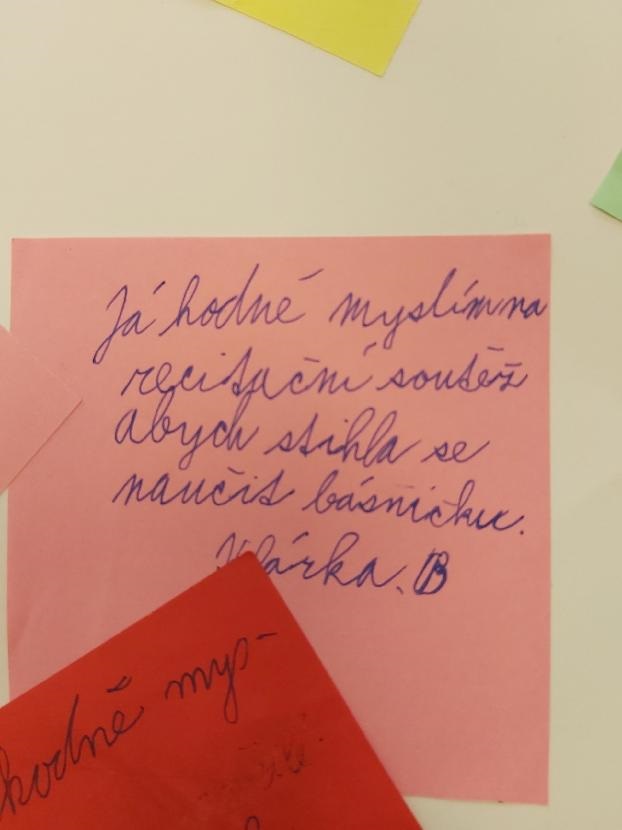 Já hodně myslím na
recitační soutěž
abych stihla se
naučit básničku.
Klárka. B
hodně mys-